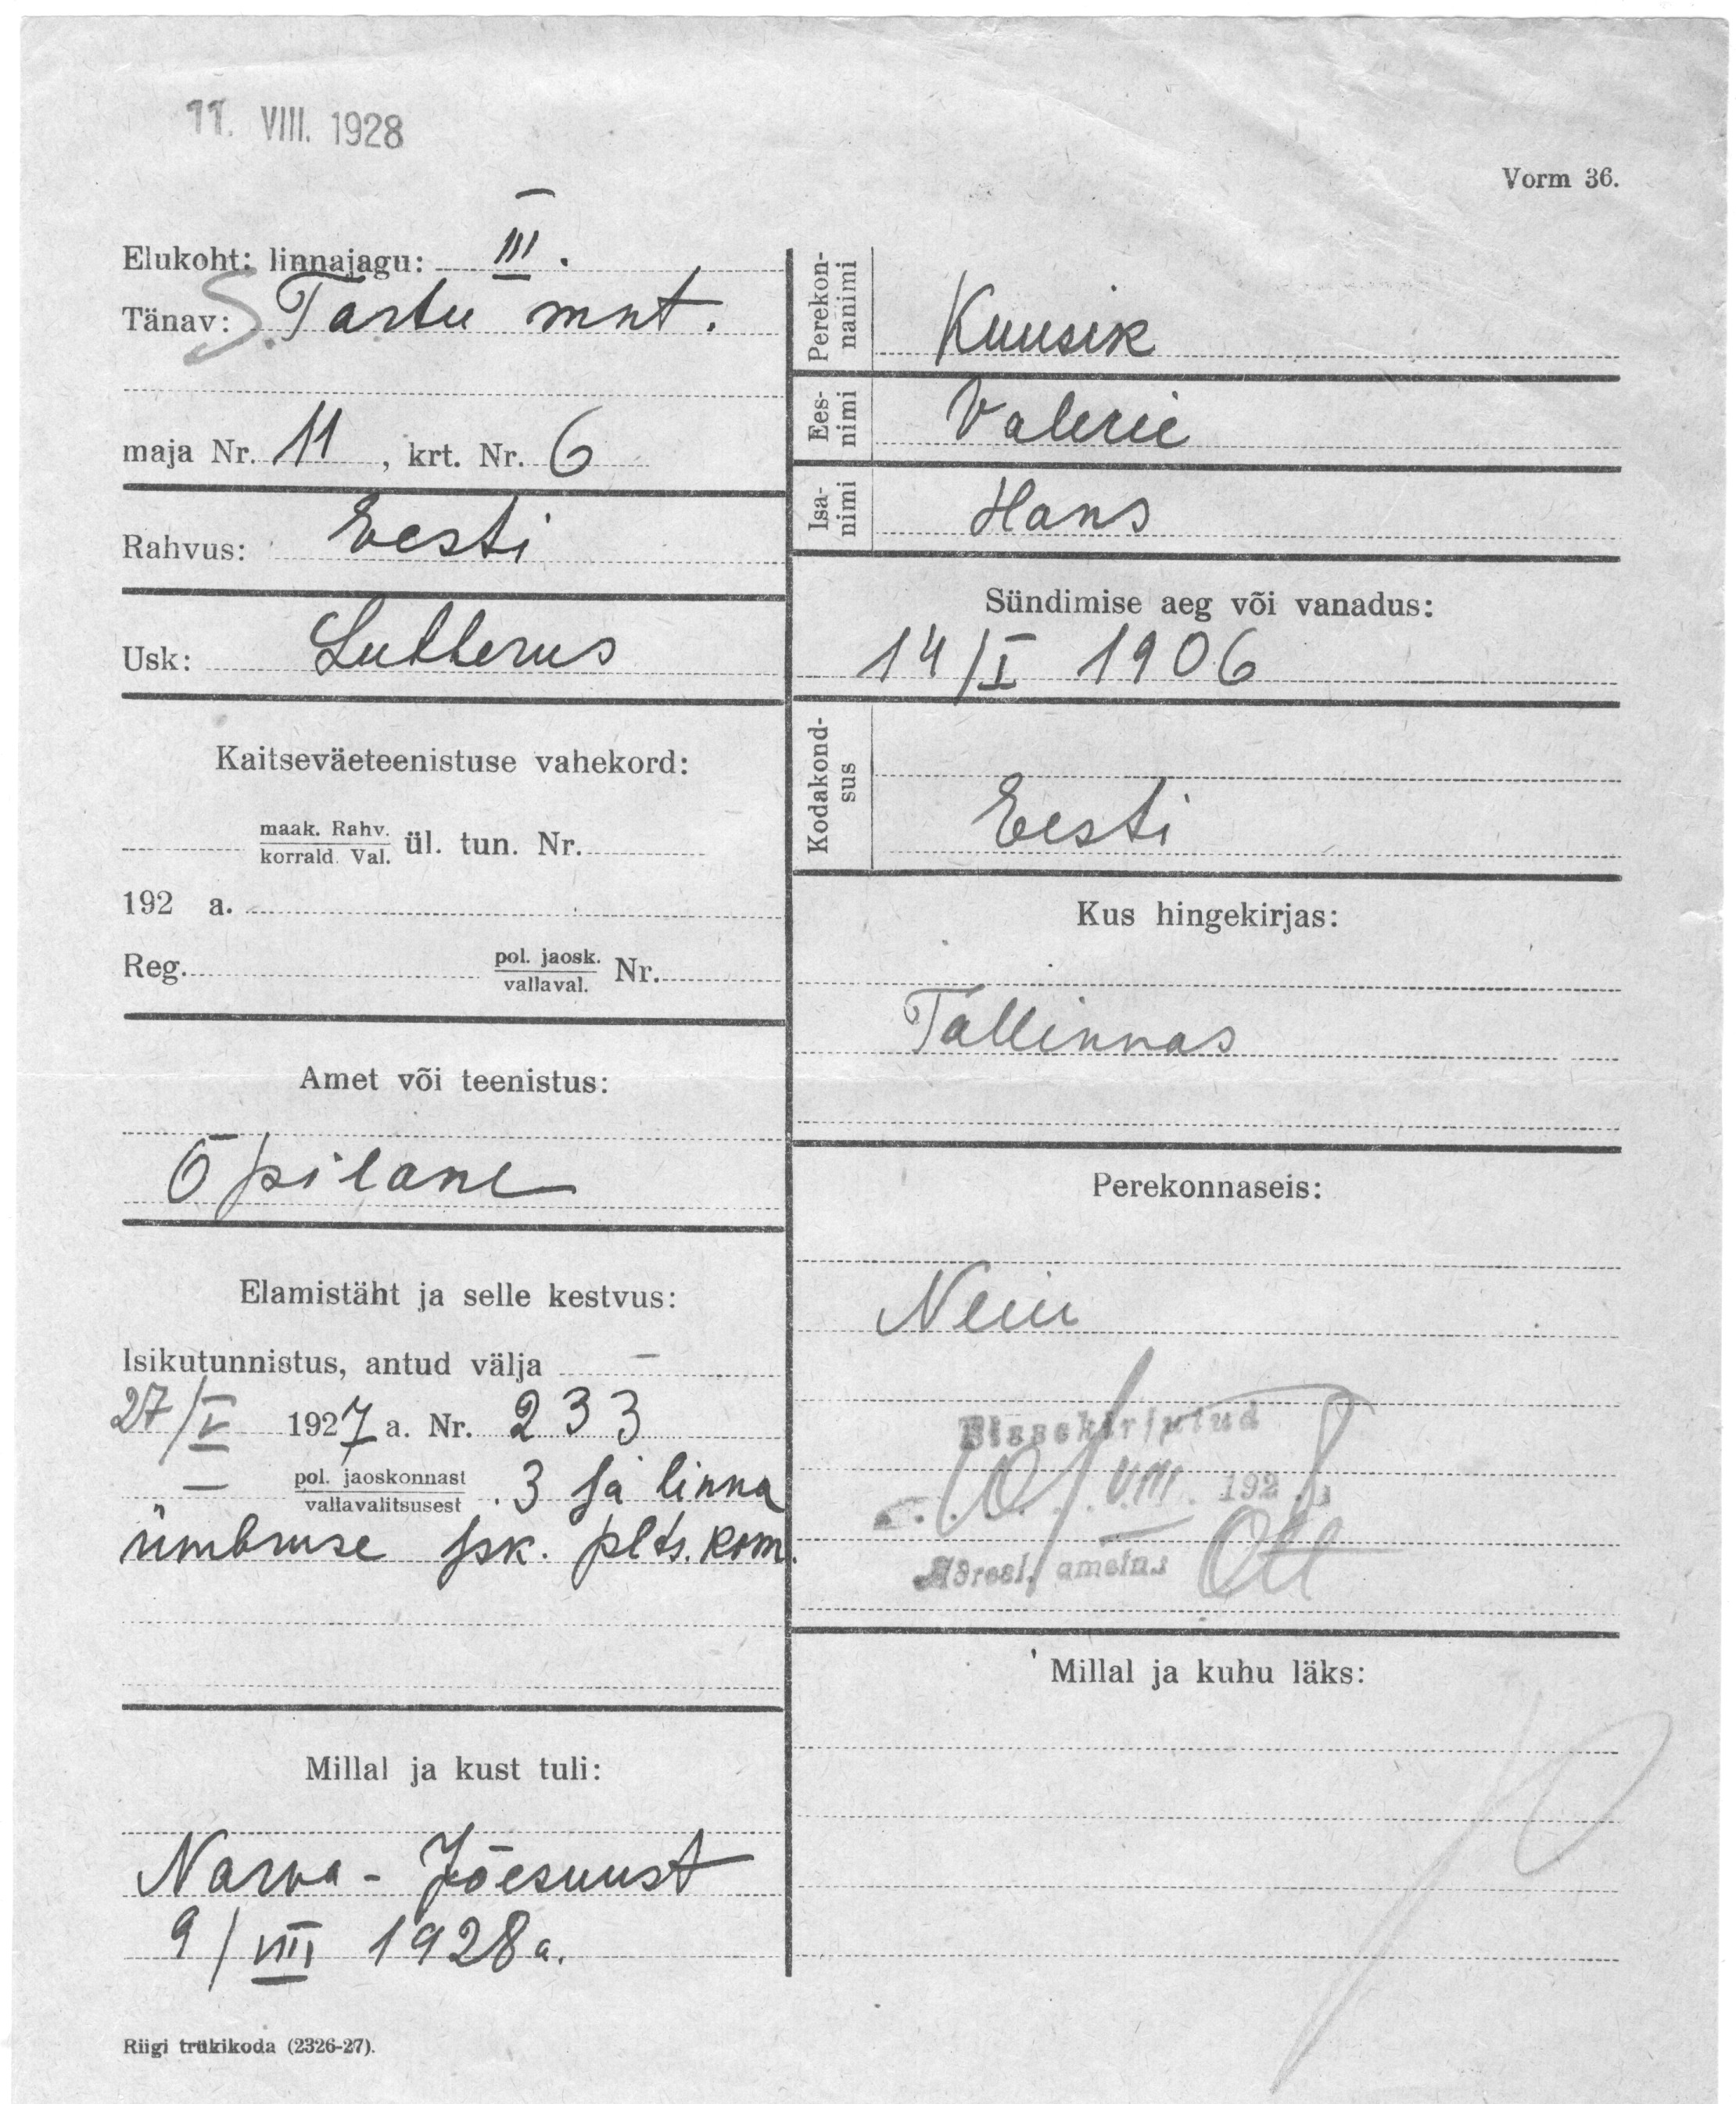 11. VIII. 1928
Vorm 36.
Elukoht: linnajagu: III.
Tänav: S. Tartu mnt.
maja Nr. 11, krt. Nr. 6
Rahvus: Eesti
Usk: Lutherus
Kaitseväeteenistuse vahekord:
maak. Rahv.
korrald. Val. ül. tun. Nr.
192 a.
Reg. pol. jaosk.
vallaval. Nr.
Amet või teenistus:
Õpilane
Elamistäht ja selle kestvus:
Isikutunnistus, antud välja —
27/V 1927 a. Nr. 233
— pol. jaoskonnast
vallavalitsusest 3 ja linna
ümbruse jsk. plts. kom.
Millal ja kust tuli:
Narva-Jõesuust
9/VIII 1928 a.
Riigi trükikoda (2326-27).
Perekon-
nanimi
Kuusik
Ees-
nimi
Valerie
Isa-
nimi
Hans
Sündimise aeg või vanadus:
14/I 1906
Kodakond-
sus
Eesti
Kus hingekirjas:
Tallinnas
Perekonnaseis:
Neiu
Sissekirjutud
10/VIII 1928
Adresl. ametn. Ott
Millal ja kuhu läks: